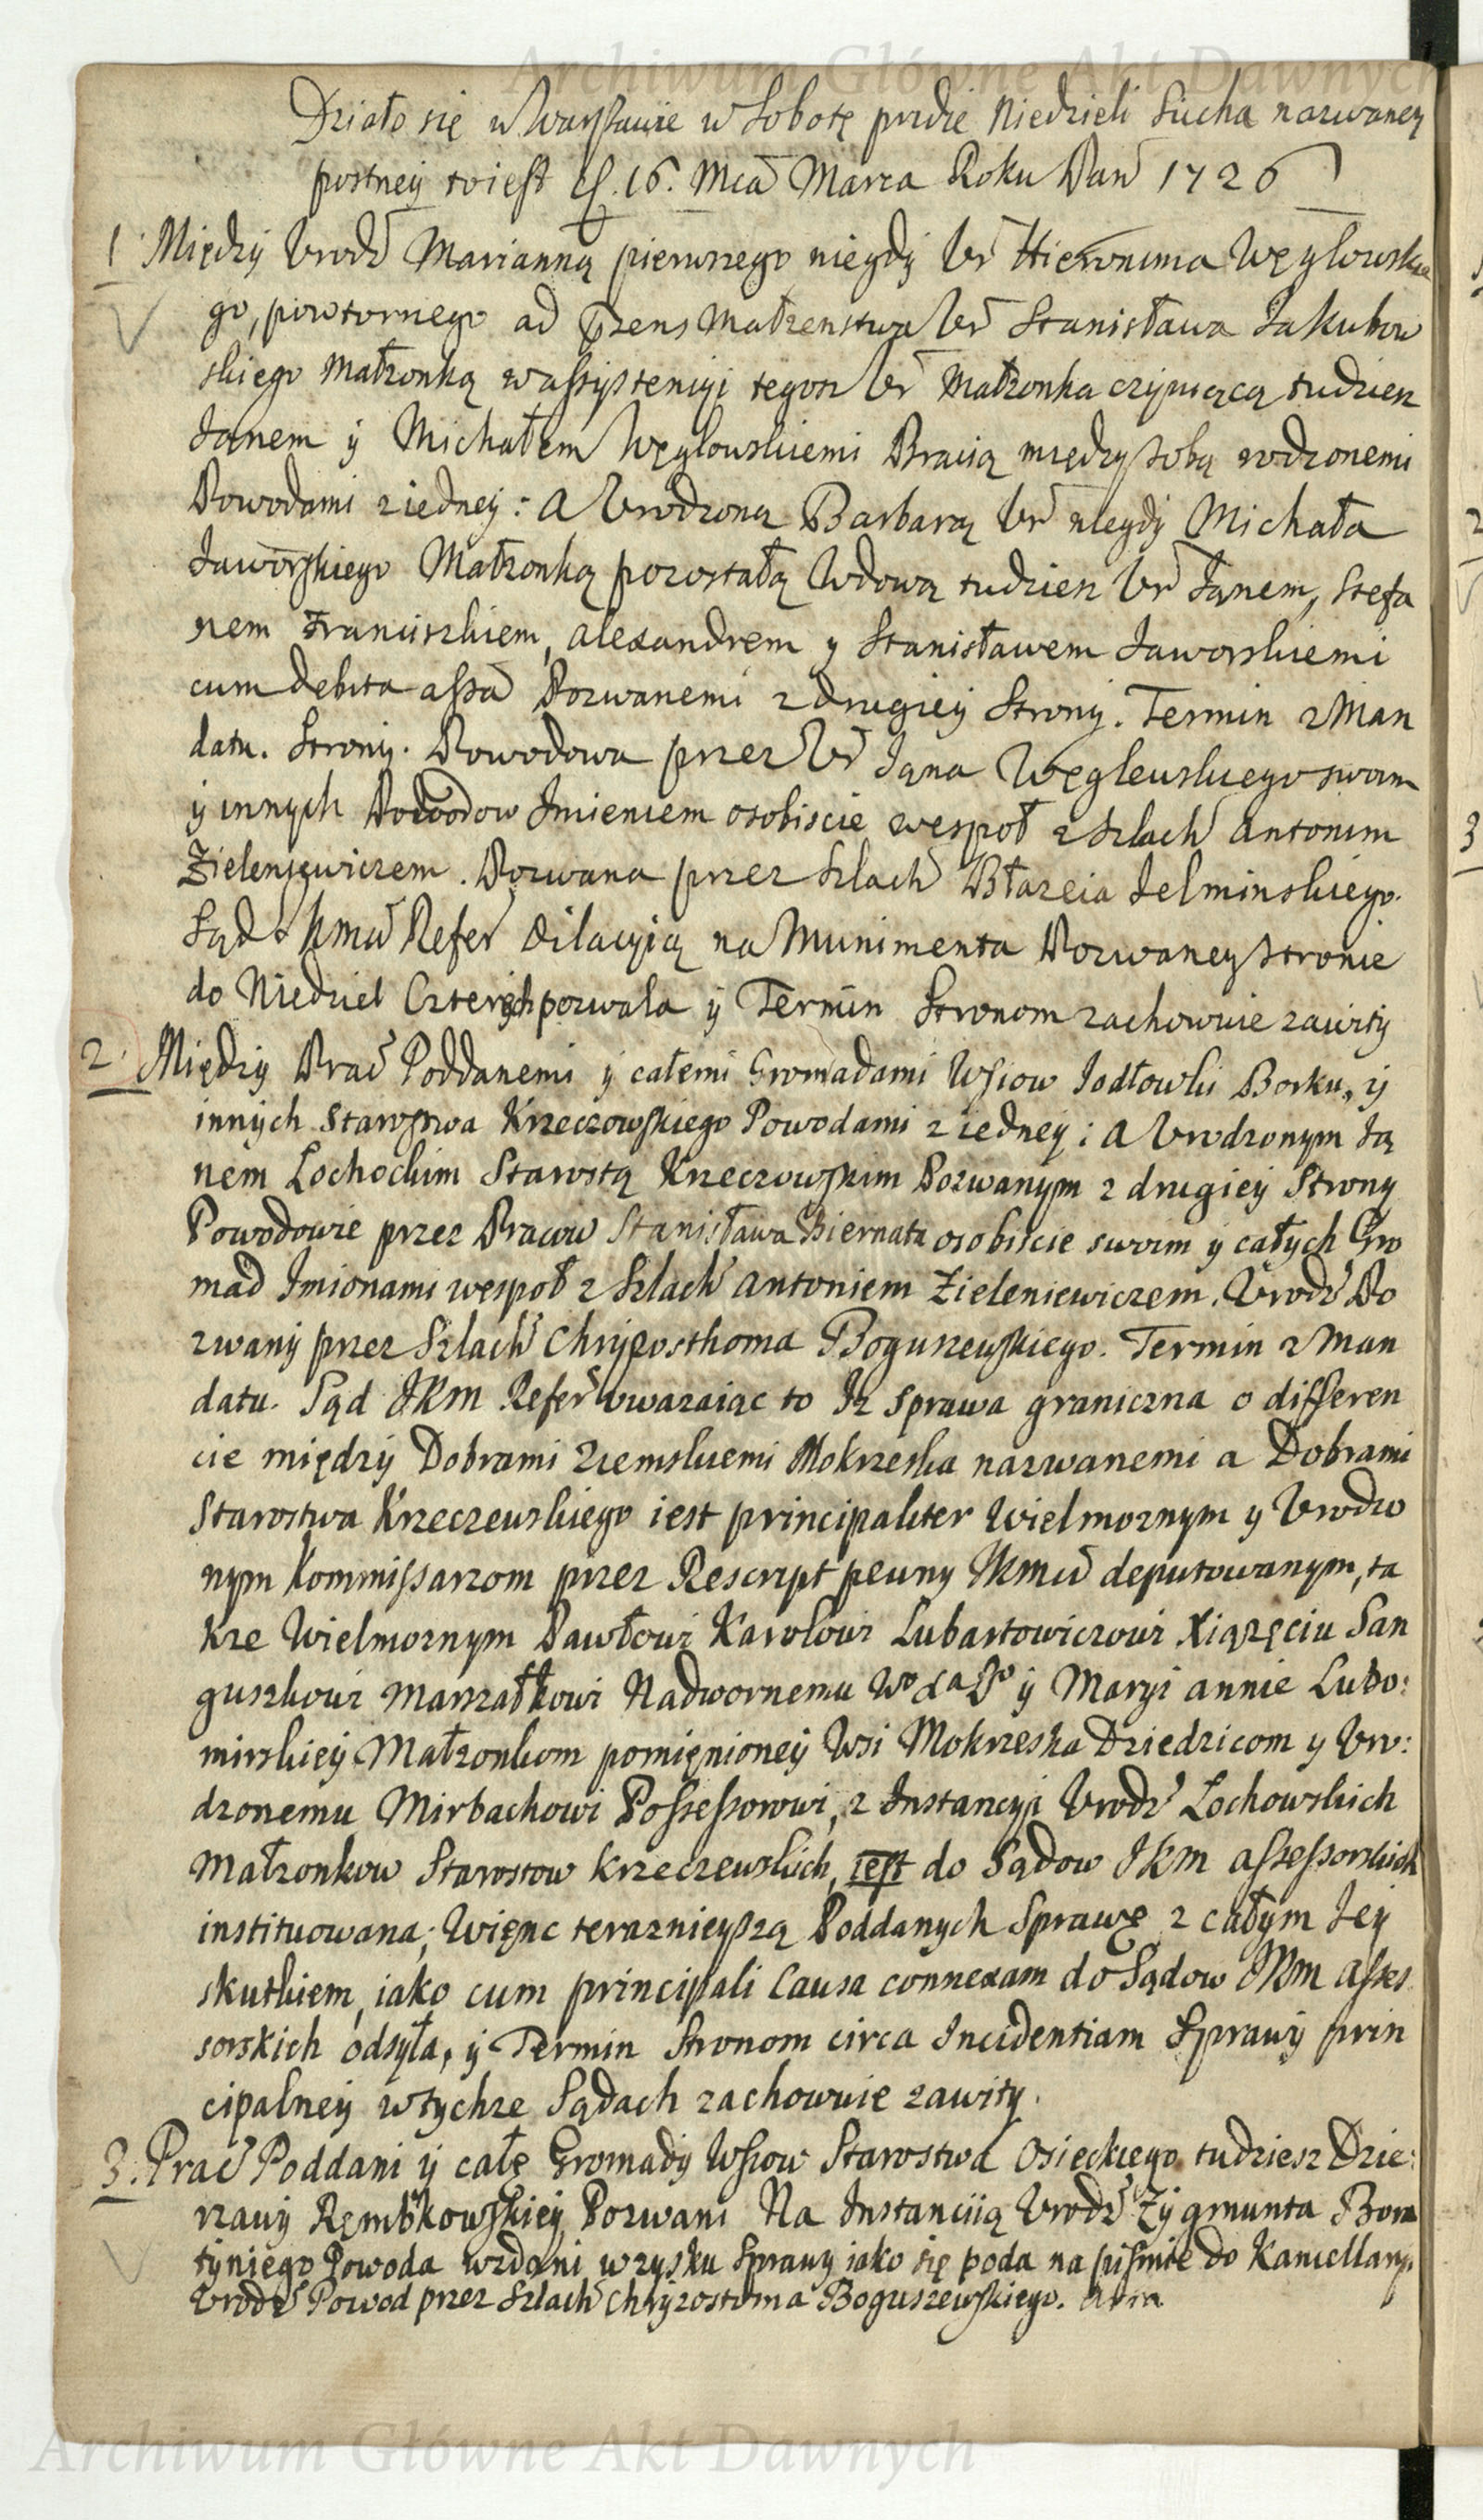 Archiwum Główne Akt Dawnych
Działo się w Warszawie w Sobotę przd nie Niedzieli Sucha nazwaney
postney to iest d. 16. Mca Marca Roku Pań 1726
1 Między Urodź Marianną pierwszego niegdy Ur Hieronima Węglowskie
go, powtornego ad praens Małzenstwa Ur Stanisława Jakubow
skiego Małzonką w assystencyi tegosz Ur Małzonka czyniącą tudziesz
Janem ÿ Michałem Węglowskiemi Bracią między sobą rodzonemi
Powodami z iedney: a Urodzoną Barbarą Ur niegdy Michała
Jaworskiego Małzonką pozostałą Wdową tudziesz Ur Janem, Stefa
nem Franciszkiem, Alexandrem y Stanisławem Jaworskiemi
cum debita assã Pozwanemi z drugieÿ Strony. Termin z Man
datu. Strony. Powodowa przez Ur Jana Węglewskiego swoim
ÿ innych Powodow Imieniem osobiscie wespoł z Szlach Antonim
Zieleniewiczem. Pozwana przez Szlach Błazeia Jelminskiego.
Sąd Jkmci Refer dilacyią na Munimenta Pozwaney Stronie
do Niedziel Czterech pozwala ÿ Termin Stronom zachowuie zawity
2. Między Prac Poddanemi ÿ całemi Gromadami Wsiow Jodłowki Borku, ÿ
innych Starostwa Krzeczowskiego Powodami z iedneÿ: a Urodzonym Ja
nem Lochockim Starostą Krzeczowskim Pozwanym z drugieÿ Strony
Powodowie przez Pracow Stanisława Biernata osobiscie swoim ÿ całych Gro
mad Imionami wespoł z Szlach Antoniem Zieleniewiczem. Urodź Po
zwany przez Szlach Chryzosthoma Boguszewskiego. Termin z Man
datu. Sąd JKM Refer uwazaiąc to Iz Sprawa graniczna o differen
cie międzÿ Dobrami Ziemskiemi Mokrzeska nazwanemi a Dobrami
Starostwa Krzeczewskiego iest principaliter Wielmoznym y Urodzo
nym Kommissarzom przez Rescript pewny Jkmci deputowanym, ta
kze Wielmoznym Pawłowi Karolowi Lubartowiczowi Xiązęciu San
guszkowi Marszałkowi Nadwornemu Wo Ca Lo ÿ Maryi annie Lubo:
mirskieÿ Małzonkom pomięnioneÿ Wsi Mokrzeska Dziedzicom y Uro:
dzonemu Mirbachowi Possessorowi, z Instancyi Urodź Lochowskich
Małzonkow Starostow Krzeczewskich, iest do Sądow JKM assessorskich
instituowana; Więnc terazniejszą Poddanych Sprawę z całym Jey
skutkiem, iako cum principali Causa connexam do Sądow JKM asses
sorskich odsyła, ÿ Termin Stronom circa Incidentiam Sprawÿ prin
cipalneÿ w tychze Sądach zachowuie zawity.
3. Prac Poddani ÿ całe Gromadÿ Wsiow Starostwa Osieckiego tudziesz Dzie:
rzawÿ Rembkowskieÿ Pozwani Na Instancÿią Urodź Zÿgmunta Bora
tyniego Powoda wzdani w zysku Sprawy iako się poda na pismie do Kancellaryi.
Urodź Powod przez Szlach Chryzostoma Boguszewskiego.
Archiwum Główne Akt Dawnych